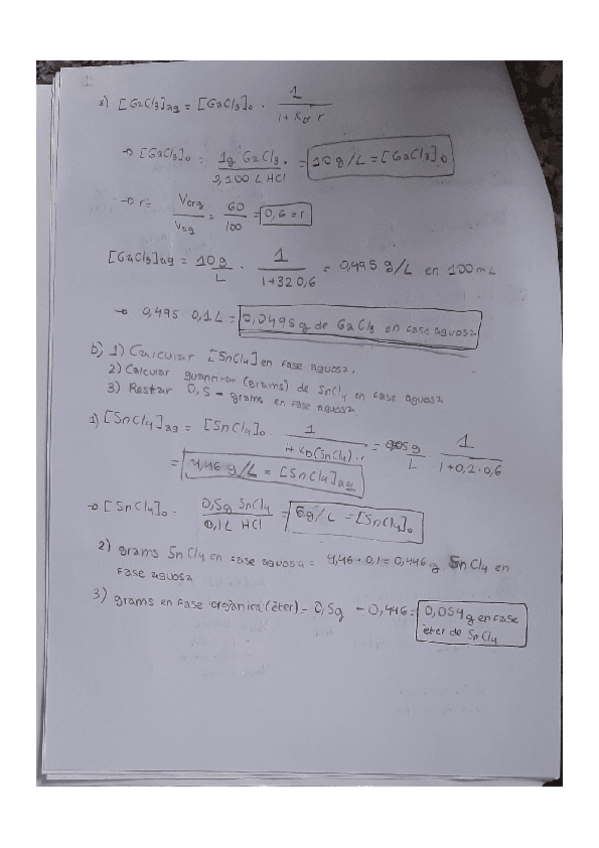 a) [GaCl3]ag = [GaCl3]o · 1 / 1+ KD r
→ [GaCl3]o = 1g GaCl3 / 0,100 L HCl = 10 g/L = [GaCl3]o
→ r = Vorg / Vag = 60 / 100 = 0,6 = r
[GaCl3]ag = 10 g / L · 1 / 1+32 0,6 = 0,495 g/L en 100 mL
→ 0,495 0,1L = 0,0495 g de GaCl3 en fase aguosa
b) 1) Calcular [SnCl4] en fase aguosa,
2) Calcular (grams) de SnCl4 en fase aguosa
3) Restar 0,5 - grams en fase aguosa
1) [SnCl4]ag = [SnCl4]o · 1 / 1+ KD(SnCl4) · r = 5 g / L · 1 / 1+0,2·0,6
= 4,46 g/L = [SnCl4]ag
→ [SnCl4]o · 0,5g SnCl4 / 0,1L HCl = 5g/L = [SnCl4]o
2) grams SnCl4 en fase aguosa = 4,46 · 0,1 = 0,446 g SnCl4 en
fase aguosa
3) grams en fase orgànica (èter) = 0,5g - 0,446 = 0,054 g en fase
èter de SnCl4